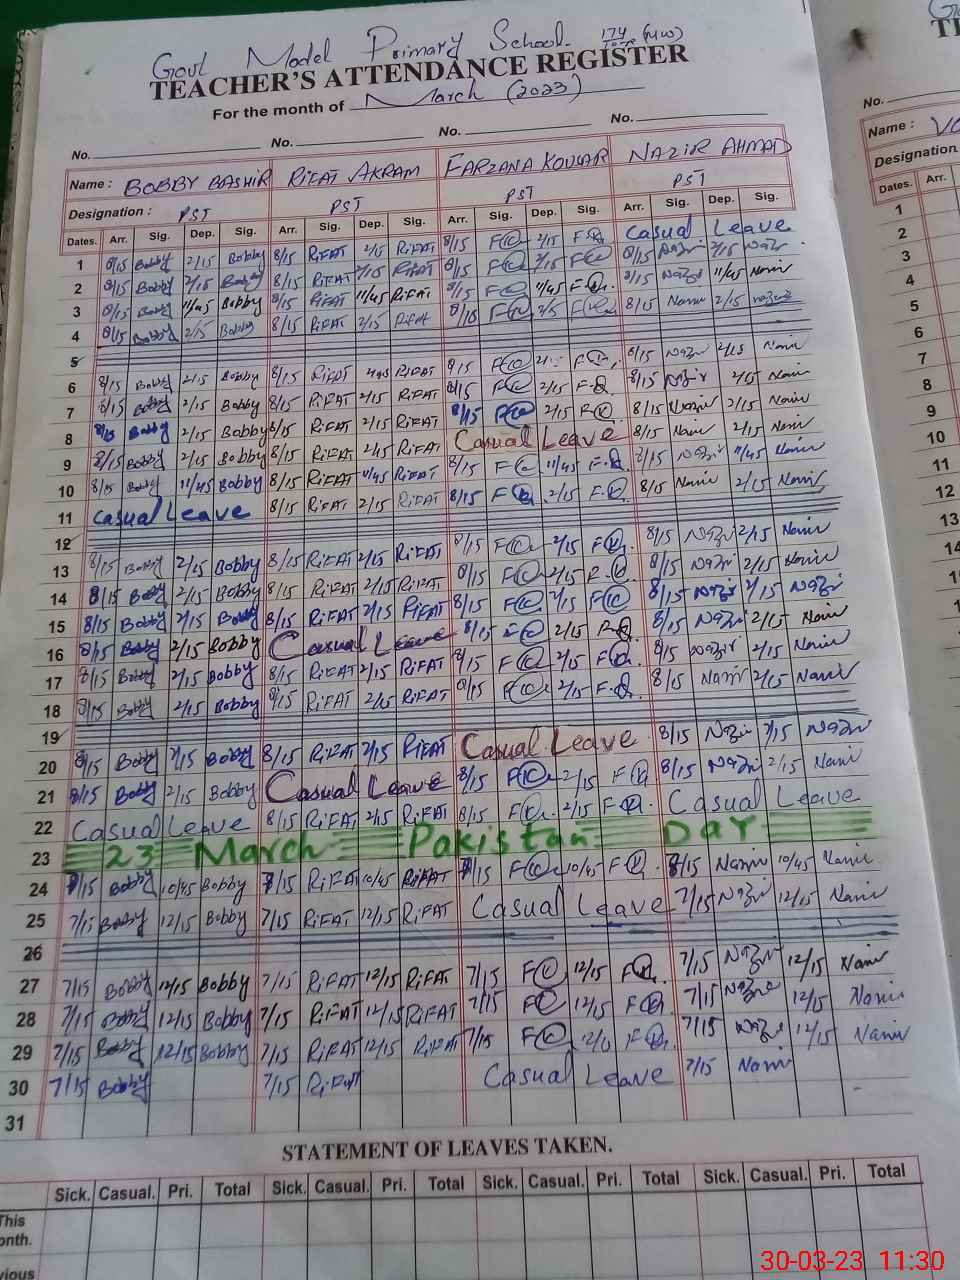 Govt Model Primary School.
TEACHER'S ATTENDANCE REGISTER
For the month of March (2023)
No. No. No. No. No.
Name : BOBBY BASHIR RIFAT AKRAM FARZANA KOUSAR NAZIR AHMAD Name :
Designation : PST PST PST PST Designation
Dates. Arr. Sig. Dep. Sig. Arr. Sig. Dep. Sig. Arr. Sig. Dep. Sig. Arr. Sig. Dep. Sig. Dates. Arr.
1 8/15 Bobby 2/15 Bobby 8/15 RIFAT 2/15 RIFAT 8/15 FK 2/15 FK Casual Leave 1
2 8/15 Bobby 2/15 Bobby 8/15 RIFAT 2/15 RIFAT 8/15 FK 2/15 FK 8/15 Nazir 2/15 Nazir 2
3 8/15 Bobby 11/45 Bobby 8/15 RIFAT 11/45 RIFAT 8/15 FK 11/45 F.K. 8/15 Nazir 11/45 Nazir 3
4 8/15 Bobby 2/15 Bobby 8/15 RIFAT 2/15 RIFAT FK FK 8/15 Nazir 2/15 Nazir 4
5 5
6 8/15 Bobby 2/15 Bobby 8/15 RIFAT RIFAT 8/15 FK F.K. 8/15 Nazir 2/15 Nazir 6
7 8/15 Bobby 2/15 Bobby 8/15 RIFAT 2/15 RIFAT 8/15 FK 2/15 F.K. 8/15 Nazir 2/15 Nazir 7
8 8/15 Bobby 2/15 Bobby 8/15 RIFAT 2/15 RIFAT 8/15 FK 2/15 FK 8/15 Nazir 2/15 Nazir 8
9 8/15 Bobby 2/15 Bobby 8/15 RIFAT 2/15 RIFAT Casual Leave 8/15 Nazir 2/15 Nazir 9
10 8/15 Bobby 11/45 Bobby 8/15 RIFAT 11/45 RIFAT 8/15 FK 11/45 F.K. 8/15 Nazir 11/45 Nazir 10
11 Casual Leave 8/15 RIFAT 2/15 RIFAT 8/15 FK 2/15 F.K. 8/15 Nazir 2/15 Nazir 11
12 12
13 8/15 Bobby 2/15 Bobby 8/15 RIFAT 2/15 RIFAT 8/15 FK 2/15 FK 8/15 Nazir 2/15 Nazir 13
14 8/15 Bobby 2/15 Bobby 8/15 RIFAT 2/15 RIFAT 8/15 FK 2/15 F.K 8/15 Nazir 2/15 Nazir 14
15 8/15 Bobby 2/15 Bobby 8/15 RIFAT 2/15 RIFAT 8/15 FK 2/15 FK 8/15 Nazir 2/15 Nazir
16 8/15 Bobby 2/15 Bobby Casual Leave 8/15 FK 2/15 FK 8/15 Nazir 2/15 Nazir
17 8/15 Bobby 2/15 Bobby 8/15 RIFAT 2/15 RIFAT 8/15 FK 2/15 FK 8/15 Nazir 2/15 Nazir
18 8/15 Bobby 2/15 Bobby 8/15 RIFAT 2/15 RIFAT 8/15 FK 2/15 F.K 8/15 Nazir 2/15 Nazir
19
20 8/15 Bobby 2/15 Bobby 8/15 RIFAT 2/15 RIFAT Casual Leave 8/15 Nazir 2/15 Nazir
21 8/15 Bobby 2/15 Bobby Casual Leave 8/15 FK 2/15 FK 8/15 Nazir 2/15 Nazir
22 Casual Leave 8/15 RIFAT 2/15 RIFAT 8/15 FK 2/15 FK. Casual Leave
23 23 March Pakistan Day
24 8/15 Bobby 10/45 Bobby 8/15 RIFAT 10/45 RIFAT 8/15 FK 10/45 FK. 8/15 Nazir 10/45 Nazir
25 7/15 Bobby 12/15 Bobby 7/15 RIFAT 12/15 RIFAT Casual Leave 7/15 Nazir 12/15 Nazir
26
27 7/15 Bobby 12/15 Bobby 7/15 RIFAT 12/15 RIFAT 7/15 FK 12/15 FK. 7/15 Nazir 12/15 Nazir
28 7/15 Bobby 12/15 Bobby 7/15 RIFAT 12/15 RIFAT 7/15 FK 12/15 FK 7/15 Nazir 12/15 Nazir
29 7/15 Bobby 12/15 Bobby 7/15 RIFAT 12/15 RIFAT 7/15 FK FK 7/15 Nazir 12/15 Nazir
30 7/15 Bobby 7/15 RIFAT Casual Leave 7/15 Nazir
31
STATEMENT OF LEAVES TAKEN.
Sick. Casual. Pri. Total Sick. Casual. Pri. Total Sick. Casual. Pri. Total Sick. Casual. Pri. Total
This
onth.
vious
30-03-23 11:30